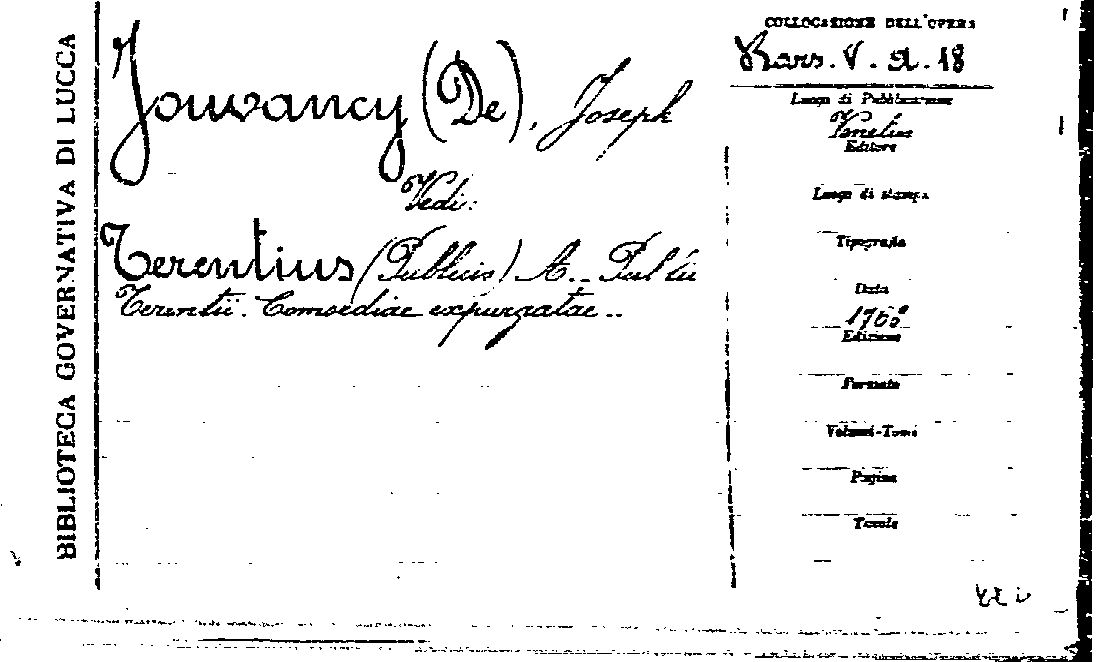 BIBLIOTECA GOVERNATIVA DI LUCCA
Jouvancy (De), Joseph
Vedi:
Terentius (Publius) A. Publii
Terentii. Comoediae expurgatae..
COLLOCAZIONE DELL'OPERA
V. A. 18
Luogo di Pubblicazione
Venetiis
Editore
Luogo di stampa
Tipografia
Data
Edizione
Formato
Volumi-Tomi
Pagine
Tavole